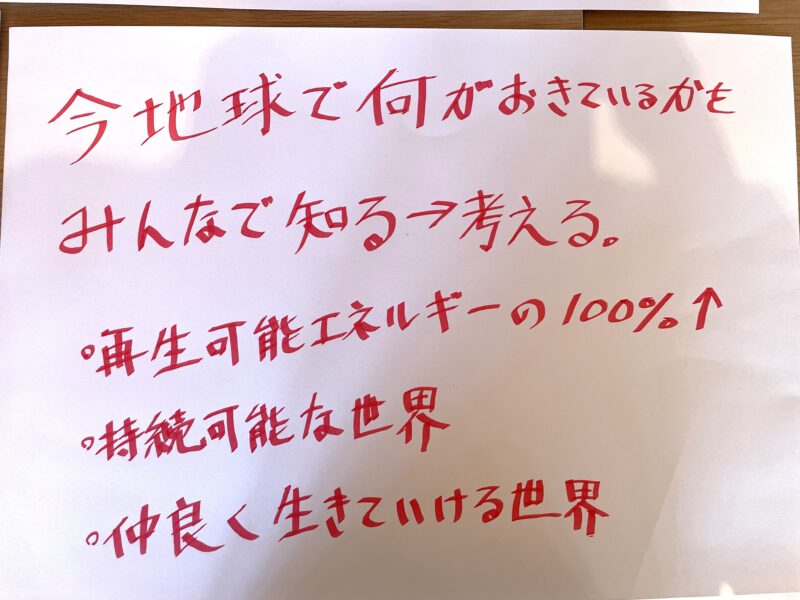 今地球で何がおきているかを
みんなで知る→考える。
。再生可能エネルギーの100%↑
。持続可能な世界
。仲良く生きていける世界